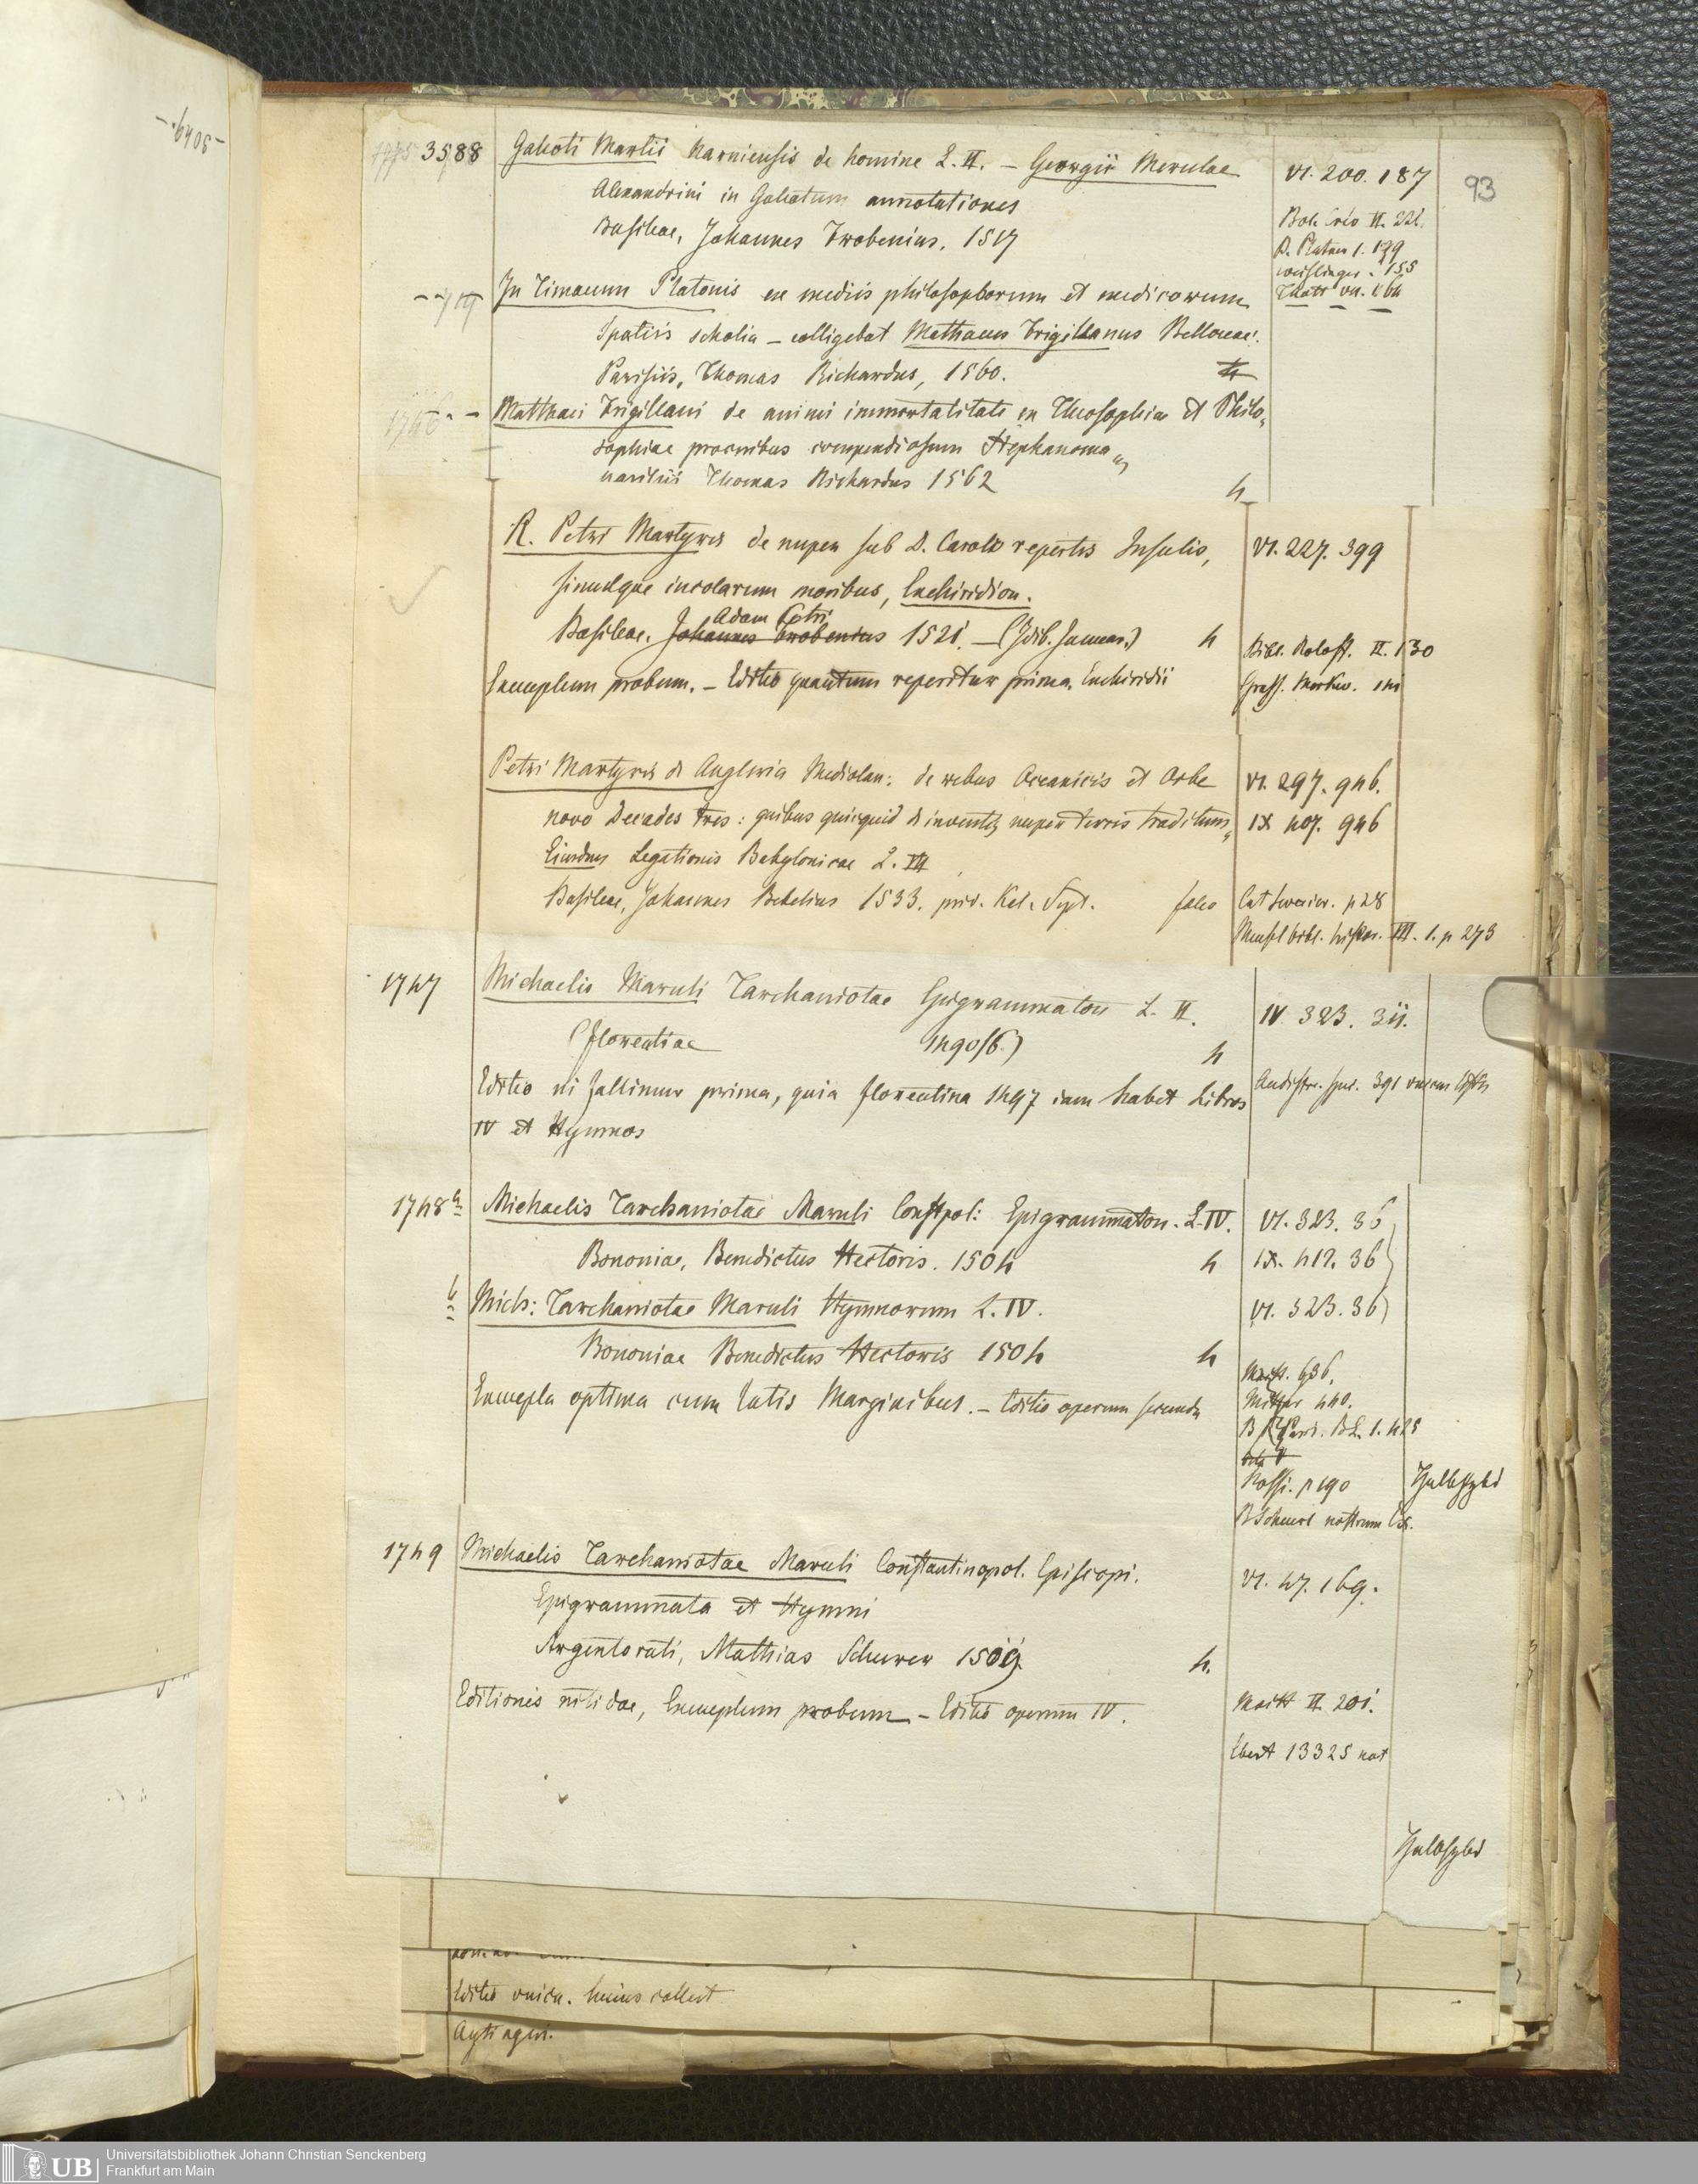 3588 Galeoti Martii Narniensis de homine L. II. – Georgii Merulae VI. 200. 187
93
Alexandrini in Galeotum annotationes
Basileae, Johannes Frobenius, 1517
In Timaeum Platonis ex mediis philosophorum et medicorum
spatiis scholia – colligebat Matthaeus Frigillanus Bellovac:
Parisiis, Thomas Richardus, 1560. 4
1746 Matthaei Frigillani de animi immortalitate ex Theosophiae et Philo„
sophiae proceribus compendiosum Stephanoma„
Parisiis Thomas Richardus 1562 4
R. Petri Martyris de nuper sub D. Carolo repertis Insulis, VI. 227. 399
simulque incolarum moribus, Enchiridion.
Adam Petri
Basileae, Johannes Frobenius 1521. – (Idib. Januar.) 4
Bibl. Roloff. II. 130
Exemplum probum. – Editio quantum reperitur prima Enchiridii
Petri Martyris ab Angleria Mediolan: de rebus Oceanicis et Orbe VI. 297. 946.
novo Decades tres: quibus quicquid de inventis nuper terris traditum„ IX 407. 946
Eiusdem Legationis Babylonicae L. III
Basileae, Johannes Bebelius 1533. prid. Kal. Sept. folio
p 28
Meusel bibl. histor. III. 1. p 273
1747 Michaelis Maruli Tarchaniotae Epigrammaton L. II. IV 323. 311.
(Florentiae 1490/6.) 4
Editio ni fallimur prima, quia florentina 1497 iam habet Libros
IV et Hymnos
1748 a Michaelis Tarchaniotae Maruli Constpol: Epigrammaton. L. IV. VI. 323. 36
Bononiae, Benedictus Hectoris. 1504 4 IX. 417. 36
b Mich: Tarchaniotae Maruli Hymnorum L. IV. VI. 323. 36
Bononiae Benedictus Hectoris 1504 4
Maitt. 636.
Exempla optima cum latis Marginibus. – Editio operum secunda
440.
p 190 Halbfzbd
nostrum
1749 Michaelis Tarchaniotae Maruli Constantinopol. Episcopi. VI. 47. 169.
Epigrammata et Hymni
Argentorati, Mathias Schurer 1509 4.
Editionis nitidae, Exemplum probum – Editio operum IV. Maitt II. 201.
Ebert 13325 not
Halbfzbd
Editio unica. huius collect
Universitätsbibliothek Johann Christian Senckenberg
Frankfurt am Main
UB